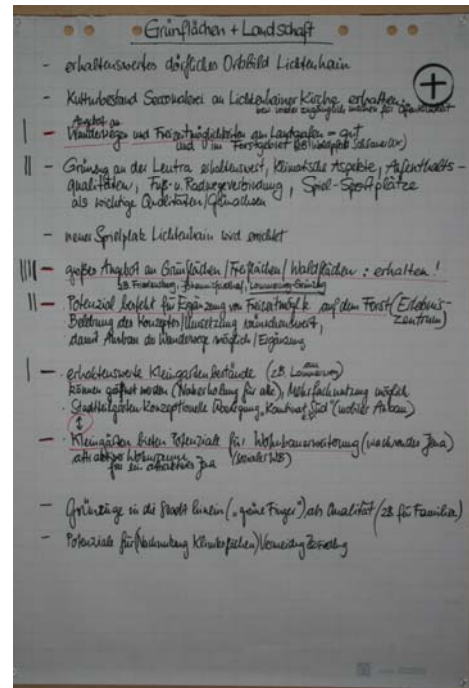 Grünflächen + Landschaft
- erhaltenswertes dörfliches Ortsbild Lichtenhain
- Kulturbestand an Lichtenhainer Kirche erhalten
bzw. wieder zugänglich machen für Öffentlichkeit
Angebot an
- Wanderwegen und Freizeitmöglichkeiten am Landgrafen = gut
und im Forstgebiet (zB Waldplatz
- Grünzug an der Leutra erhaltenswert, Klimatische Aspekte, Aufenthalts-
qualitäten, Fuß- u. Radwegeverbindung, Spiel-Sportplätze
als wichtige Qualitäten/
- neuer Spielplatz Lichtenhain wird errichtet
- großes Angebot an Grünflächen/Freiflächen/Waldflächen: erhalten!
zB Friedensberg, Johannisfriedhof,
- Potenzial besteht für Ergänzung von Freizeitmöglk. auf dem Forst (Erlebnis-
zentrum)
Belebung des Konzeptes/Umsetzung wünschenswert,
damit Ausbau der Wanderwege möglich/Ergänzung
- erhaltenswerte Kleingartenbestände (zB
können geöffnet werden (Naherholung für alle), Mehrfachnutzung möglich
· Stadtteilgarten konzeptionelle (mobiler Anbau)
- Kleingärten bieten Potenziale für Wohnbauerweiterung (wachsendes Jena)
attraktiver Wohnraum (sozialer WB)
für ein attraktives Jena
- Grünzüge in die Stadt hinein („grüne Finger“) als Qualität (zB für Familien)
- Potenziale für (Nachnutzung Klinikflächen) Vermeidung
+